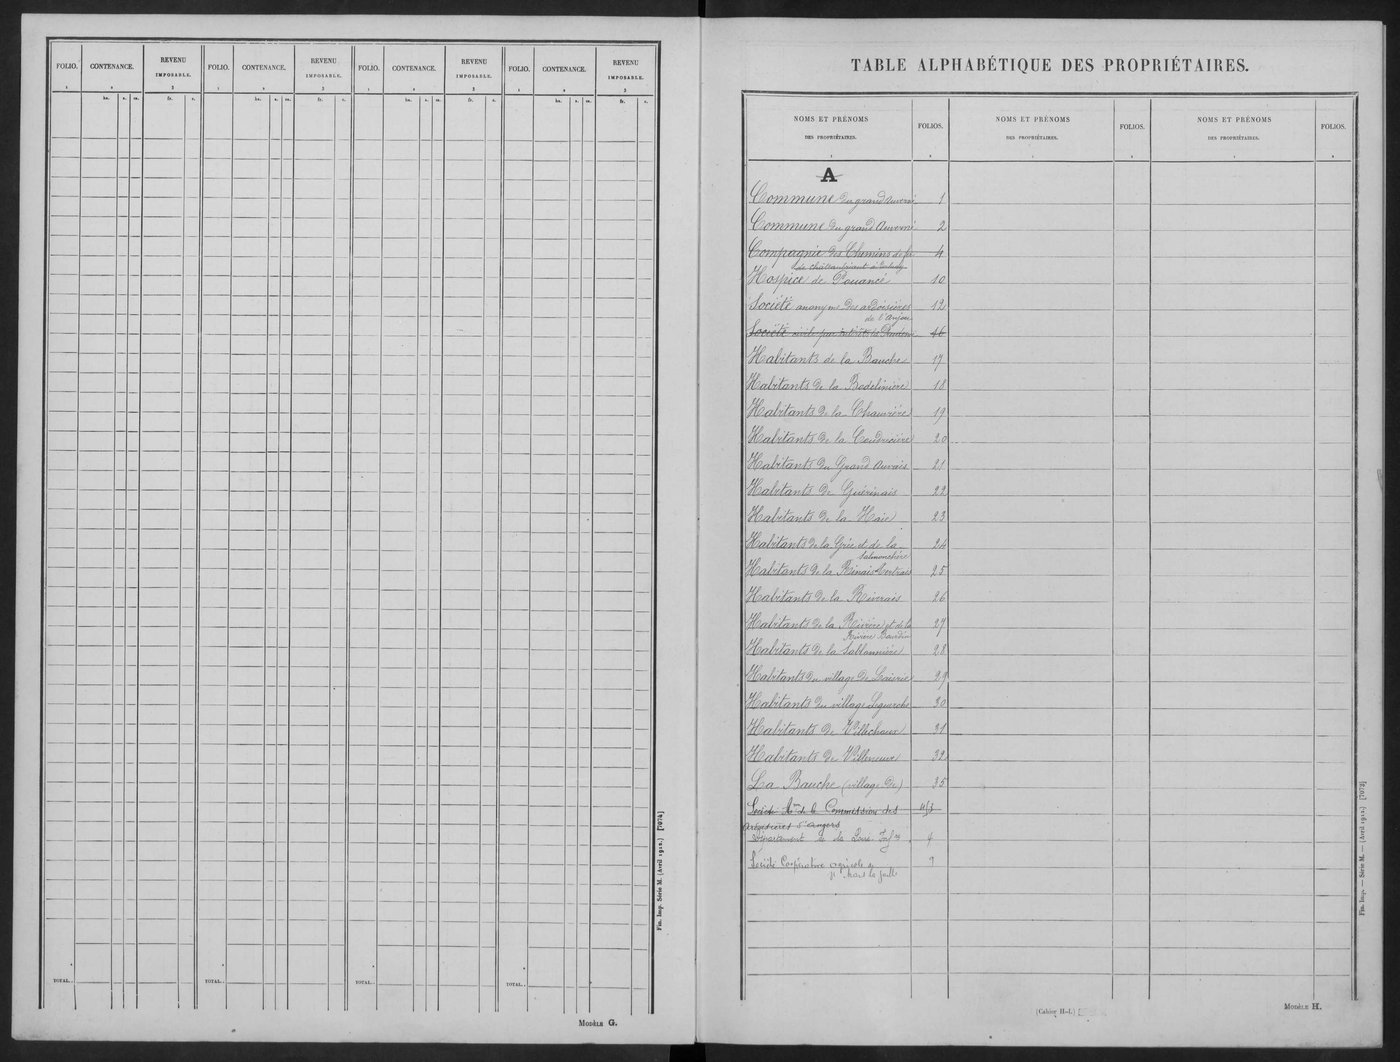 FOLIO. CONTENANCE. REVENU IMPOSABLE. FOLIO. CONTENANCE. REVENU IMPOSABLE. FOLIO. CONTENANCE. REVENU IMPOSABLE. FOLIO. CONTENANCE. REVENU IMPOSABLE.
1 2 3 1 2 3 1 2 3 1 2 3
ha. a. ca. fr. c. ha. a. ca. fr. c. ha. a. ca. fr. c. ha. a. ca. fr. c.
TOTAL. TOTAL. TOTAL. TOTAL.
Fin. Imp. Série M. (Avril 1912.) [7074]
MODÈLE G.
TABLE ALPHABÉTIQUE DES PROPRIÉTAIRES.
NOMS ET PRÉNOMS DES PROPRIÉTAIRES. FOLIOS. NOMS ET PRÉNOMS DES PROPRIÉTAIRES. FOLIOS. NOMS ET PRÉNOMS DES PROPRIÉTAIRES. FOLIOS.
A
Commune du grand Auverné 1
Commune du grand Auverné 2
Compagnie des Chemins de fer 4
de Châteaubriant à
Hospice de Pouancé 10
Société anonyme des ardoisières 12
de l'Anjou
Société civile 46
Habitants de la Bauche 17
Habitants de la Bodelinière 18
Habitants de la Chauvière 19
Habitants de la Coudrecière 20
Habitants du Grand Auvais 21
Habitants de Guérinais 22
Habitants de la Haie 23
Habitants de la Grée et de la 24
Salmonchère
Habitants de la Rinais 25
Habitants de la Riverais 26
Habitants de la Rivière et de la 27
Rivière Bourdin
Habitants de la Sablonnière 28
Habitants du village de 29
Habitants du village 30
Habitants de Villechaux 31
Habitants de Villeneuve 32
La Bauche (village de) 35
Société Ame de la Commission des
Ardoisières d'Angers
Département de la Loire Infre 4
Société Coopérative agricole de
St Mars la Jaille
Fin. Imp. — Série M. — (Avril 1912.) [7073]
(Cahier H-I.)
MODÈLE H.